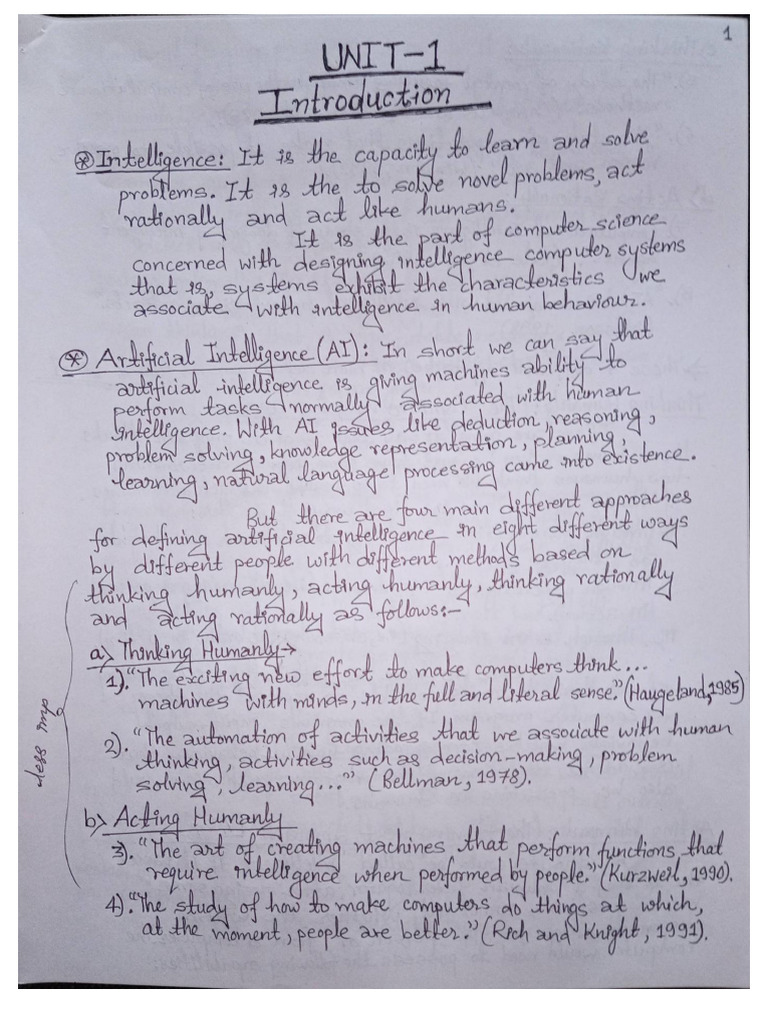 1
UNIT-1
Introduction
⊛ Intelligence: It is the capacity to learn and solve
problems. It is the to solve novel problems, act
rationally and act like humans.
It is the part of computer science
concerned with designing intelligence computer systems
that is, systems exhibit the characteristics we
associate with intelligence in human behaviour.
⊛ Artificial Intelligence (AI): In short we can say that
artificial intelligence is giving machines ability to
perform tasks normally associated with human
intelligence. With AI issues like deduction, reasoning,
problem solving, knowledge representation, planning,
learning, natural language processing came into existence.
But there are four main different approaches
for defining artificial intelligence in eight different ways
by different people with different methods based on
thinking humanly, acting humanly, thinking rationally
and acting rationally as follows:-
a) Thinking Humanly→
1). "The exciting new effort to make computers think...
machines with minds, in the full and literal sense." (Haugeland, 1985)
2). "The automation of activities that we associate with human
thinking, activities such as decision-making, problem
solving, learning..." (Bellman, 1978).
less imp
b) Acting Humanly
3). "The art of creating machines that perform functions that
require intelligence when performed by people." (Kurzweil, 1990).
4). "The study of how to make computers do things at which,
at the moment, people are better." (Rich and Knight, 1991).